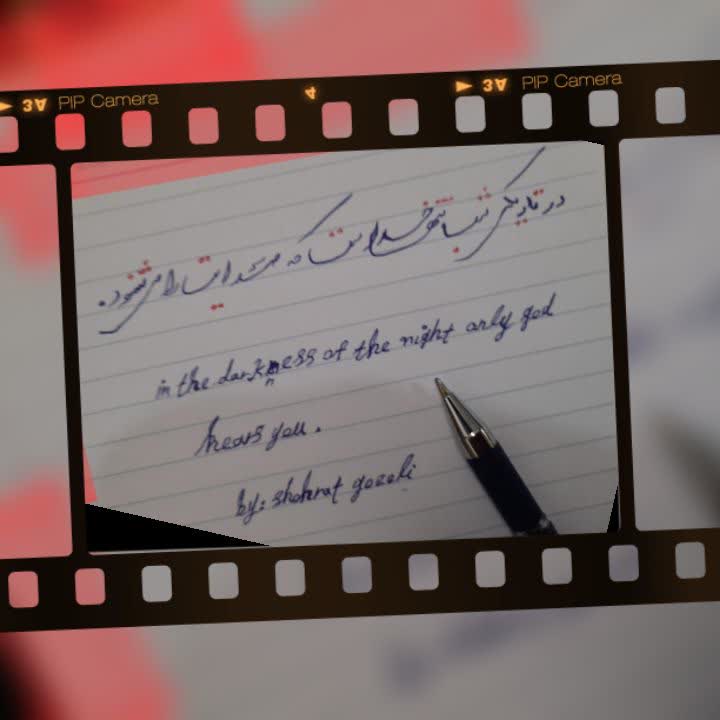 3A PIP Camera 4 3A PIP Camera
در تاریکی شب تنها خداست که صدایت را می‌شنود.
in the darkness of the night only god
hears you.
by: shohrat gozali